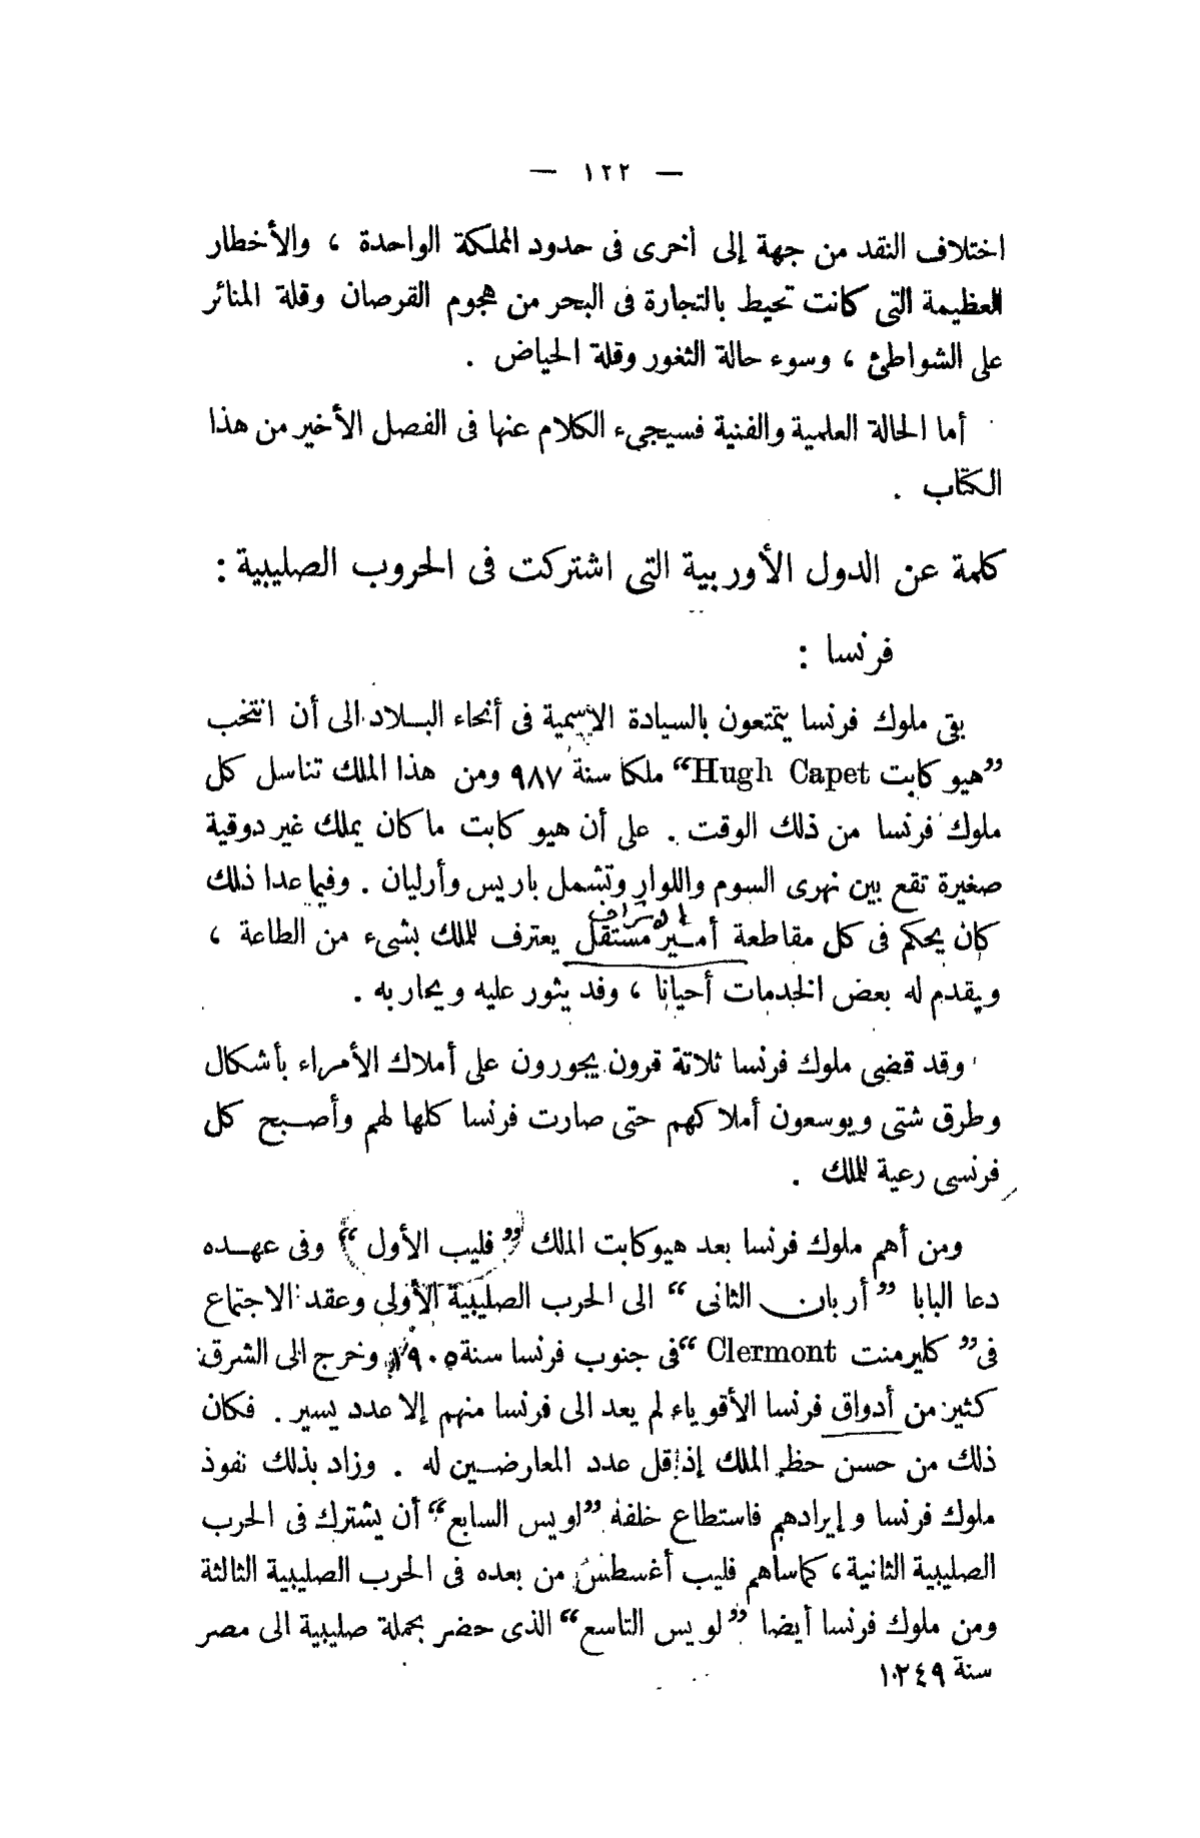 — ١٢٢ —
اختلاف النقد من جهة إلى أخرى فى حدود المملكة الواحدة ، والأخطار
العظيمة التى كانت تحيط بالتجارة فى البحر من هجوم القرصان وقلة المنائر
على الشواطئ ، وسوء حالة الثغور وقلة الحياض .
أما الحالة العلمية والفنية فسيجىء الكلام عنها فى الفصل الأخير من هذا
الكتاب .
كلمة عن الدول الأوربية التى اشتركت فى الحروب الصليبية :
فرنسا :
بقى ملوك فرنسا يتمتعون بالسيادة الإسمية فى أنحاء البلاد الى أن انتخب
”هيو كابت Hugh Capet“ ملكا سنة ٩٨٧ ومن هذا الملك تناسل كل
ملوك فرنسا من ذلك الوقت . على أن هيو كابت ما كان يملك غير دوقية
صغيرة تقع بين نهرى السوم واللوار وتشمل باريس وأرليان . وفيما عدا ذلك
كان يحكم فى كل مقاطعة أمير مستقل يعترف للملك بشىء من الطاعة ،
ويقدم له بعض الخدمات أحيانا ، وقد يثور عليه ويحاربه .
وقد قضى ملوك فرنسا ثلاثة قرون يجورون على أملاك الأمراء بأشكال
وطرق شتى ويوسعون أملاكهم حتى صارت فرنسا كلها لهم وأصبح كل
فرنسى رعية للملك .
ومن أهم ملوك فرنسا بعد هيوكابت الملك ”فليب الأول“ وفى عهده
دعا البابا ”أربان الثانى“ الى الحرب الصليبية الأولى وعقد الاجتماع
فى ”كليرمنت Clermont“ فى جنوب فرنسا سنة ١٠٩٥ وخرج الى الشرق
كثير من أدواق فرنسا الأقوياء لم يعد الى فرنسا منهم إلا عدد يسير . فكان
ذلك من حسن حظ الملك إذ قل عدد المعارضين له . وزاد بذلك نفوذ
ملوك فرنسا وإيرادهم فاستطاع خلفه ”لويس السابع“ أن يشترك فى الحرب
الصليبية الثانية ، كما ساهم فليب أغسطس من بعده فى الحرب الصليبية الثالثة
ومن ملوك فرنسا أيضا ”لويس التاسع“ الذى حضر بحملة صليبية الى مصر
سنة ١٢٤٩